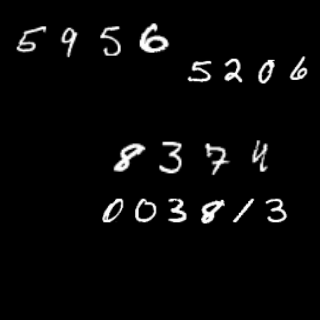 5956
5206
8374
003813